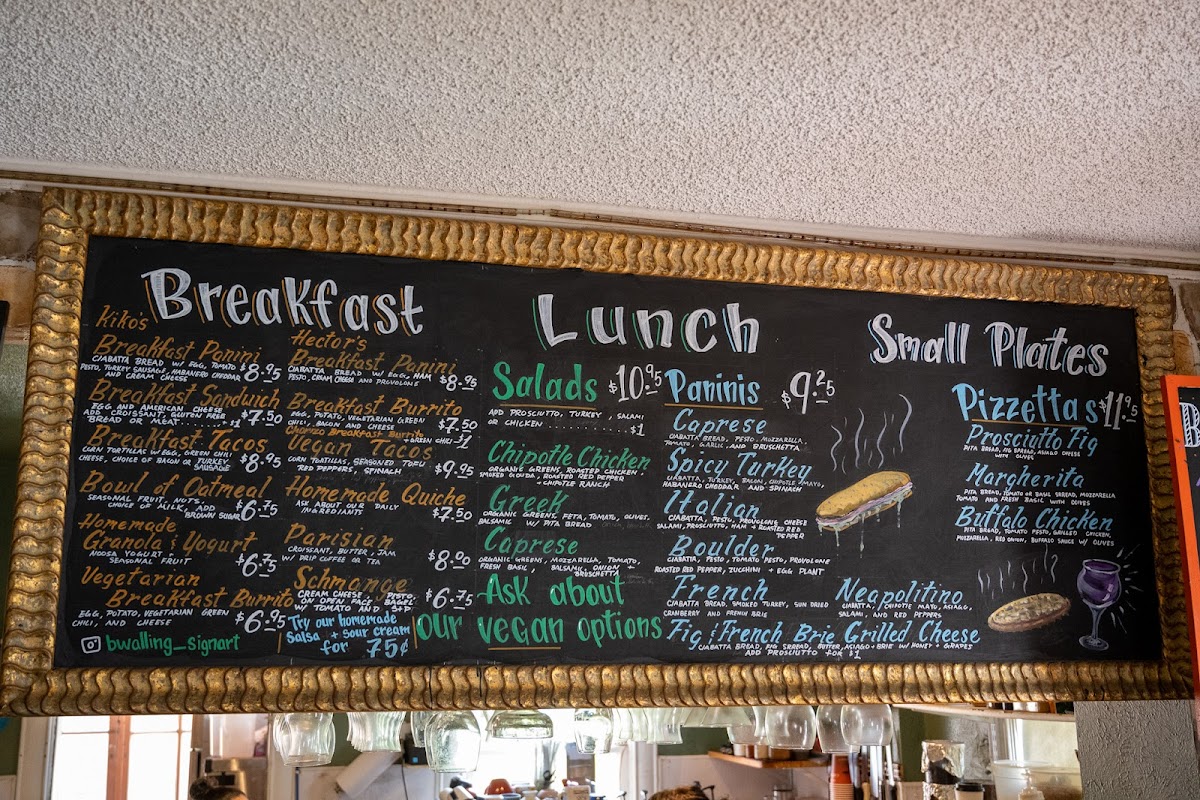 Breakfast
Kiko's
Breakfast Panini
CIABATTA BREAD W/ EGG, TOMATO
PESTO, TURKEY SAUSAGE, HABANERO CHEDDAR
AND CREAM CHEESE
$8.95
Breakfast Sandwich
EGG AND AMERICAN CHEESE
ADD CROISSANT, GLUTEN FREE
BREAD OR MEAT........$1
$7.50
Breakfast Tacos
CORN TORTILLAS W/ EGG, GREEN CHILI
CHEESE, CHOICE OF BACON OR TURKEY
SAUSAGE
$8.95
Bowl of Oatmeal
SEASONAL FRUIT, NUTS,
CHOICE OF MILK, ADD
BROWN SUGAR
$6.75
Homemade
Granola & Yogurt
NOOSA YOGURT
SEASONAL FRUIT
$6.75
Vegetarian
Breakfast Burrito
EGG, POTATO, VEGETARIAN GREEN
CHILI, AND CHEESE
$6.95
bwalling_signart
Hector's
Breakfast Panini
CIABATTA BREAD W/ EGG, HAM
PESTO, CREAM CHEESE AND PROVOLONE
$8.95
Breakfast Burrito
EGG, POTATO, VEGETARIAN GREEN
CHILI, BACON AND CHEESE
$7.50
Chorizo Breakfast Burrito
+ GREEN CHILI $1
Vegan Tacos
CORN TORTILLAS, SEASONED TOFU
RED PEPPERS, SPINACH
$9.95
Homemade Quiche
ASK ABOUT OUR DAILY
INGREDIENTS
$7.50
Parisian
CROISSANT, BUTTER, JAM
W/ DRIP COFFEE OR TEA
$8.00
Schmange
CREAM CHEESE, PESTO
ON OPEN FACE BAGEL
W/ TOMATO AND S+P
$6.75
Try our homemade
salsa + sour cream
for 75¢
Lunch
Salads $10.95
ADD PROSCIUTTO, TURKEY, SALAMI
OR CHICKEN ............ $1
Chipotle Chicken
ORGANIC GREENS, ROASTED CHICKEN,
SMOKED GOUDA, ROASTED RED PEPPER
, CHIPOTLE RANCH
Greek
ORGANIC GREENS, FETA, TOMATO, OLIVES,
BALSAMIC W/ PITA BREAD
Caprese
ORGANIC GREENS, MOZZARELLA, TOMATO,
FRESH BASIL, BALSAMIC, ONION +
BRUSCHETTA
Ask about
our vegan options
Paninis $9.25
Caprese
CIABATTA BREAD, PESTO, MOZZARELLA,
TOMATO, GARLIC, AND BRUSCHETTA
Spicy Turkey
CIABATTA, TURKEY, BACON, CHIPOTLE AMAYO,
HABANERO CHEDDAR AND SPINACH
Italian
CIABATTA, PESTO, PROVOLONE CHEESE
SALAMI, PROSCIUTTO, HAM + ROASTED RED
PEPPER
Boulder
CIABATTA, PESTO, TOMATO, PESTO, PROVOLONE
ROASTED RED PEPPER, ZUCCHINI + EGG PLANT
French
CIABATTA BREAD, SMOKED TURKEY, SUN DRIED
CRANBERRY AND FRENCH BRIE
Neapolitino
CIABATTA, CHIPOTLE MAYO, ASIAGO,
SALAMI, AND RED PEPPERS
Fig & French Brie Grilled Cheese
CIABATTA BREAD, FIG SPREAD, BUTTER, ASIAGO + BRIE W/ HONEY + GRAPES
ADD PROSCIUTTO FOR $1
Small Plates
Pizzettas $11.95
Prosciutto Fig
PITA BREAD, FIG SPREAD, ASIAGO CHEESE
WITH OLIVES
Margherita
PITA BREAD, TOMATO OR BASIL SPREAD, MOZZARELLA
TOMATO AND FRESH BASIL WITH OLIVES
Buffalo Chicken
PITA BREAD, TOMATO PESTO, GRILLED CHICKEN,
MOZZARELLA, RED ONION, BUFFALO SAUCE W/ OLIVES